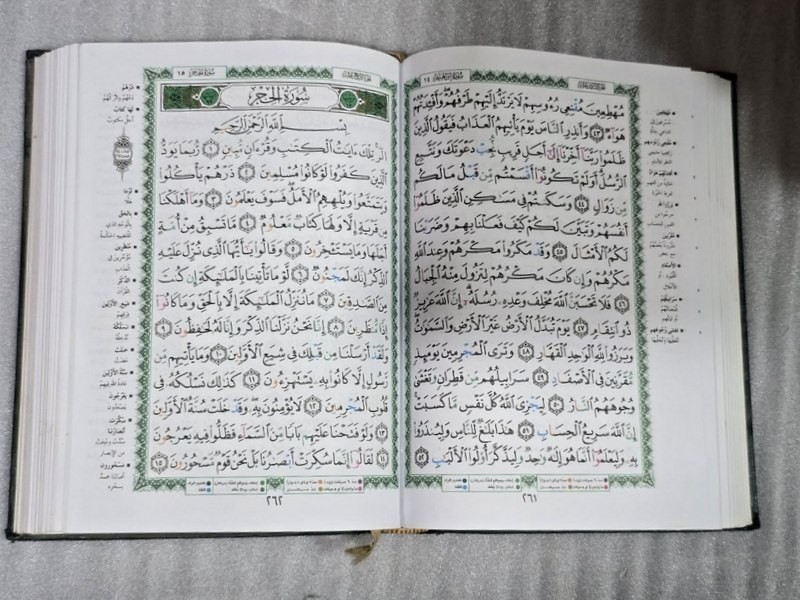 مُهْطِعِينَ مُقْنِعِى رُءُوسِهِمْ لَا يَرْتَدُّ إِلَيْهِمْ طَرْفُهُمْ وَأَفْـِٔدَتُهُمْ
هَوَآءٌ ٤٣ وَأَنذِرِ ٱلنَّاسَ يَوْمَ يَأْتِيهِمُ ٱلْعَذَابُ فَيَقُولُ ٱلَّذِينَ
ظَلَمُوا۟ رَبَّنَآ أَخِّرْنَآ إِلَىٰٓ أَجَلٍ قَرِيبٍ نُّجِبْ دَعْوَتَكَ وَنَتَّبِعِ
ٱلرُّسُلَ أَوَلَمْ تَكُونُوٓا۟ أَقْسَمْتُم مِّن قَبْلُ مَا لَكُم
مِّن زَوَالٍ ٤٤ وَسَكَنتُمْ فِى مَسَـٰكِنِ ٱلَّذِينَ ظَلَمُوٓا۟
أَنفُسَهُمْ وَتَبَيَّنَ لَكُمْ كَيْفَ فَعَلْنَا بِهِمْ وَضَرَبْنَا
لَكُمُ ٱلْأَمْثَالَ ٤٥ وَقَدْ مَكَرُوا۟ مَكْرَهُمْ وَعِندَ ٱللَّهِ
مَكْرُهُمْ وَإِن كَانَ مَكْرُهُمْ لِتَزُولَ مِنْهُ ٱلْجِبَالُ
٤٦ فَلَا تَحْسَبَنَّ ٱللَّهَ مُخْلِفَ وَعْدِهِۦ رُسُلَهُۥٓ إِنَّ ٱللَّهَ عَزِيزٌ
ذُو ٱنتِقَامٍ ٤٧ يَوْمَ تُبَدَّلُ ٱلْأَرْضُ غَيْرَ ٱلْأَرْضِ وَٱلسَّمَـٰوَٰتُ
وَبَرَزُوا۟ لِلَّهِ ٱلْوَٰحِدِ ٱلْقَهَّارِ ٤٨ وَتَرَى ٱلْمُجْرِمِينَ يَوْمَئِذٍ
مُّقَرَّنِينَ فِى ٱلْأَصْفَادِ ٤٩ سَرَابِيلُهُم مِّن قَطِرَانٍ وَتَغْشَىٰ
وُجُوهَهُمُ ٱلنَّارُ ٥٠ لِيَجْزِىَ ٱللَّهُ كُلَّ نَفْسٍ مَّا كَسَبَتْ
إِنَّ ٱللَّهَ سَرِيعُ ٱلْحِسَابِ ٥١ هَـٰذَا بَلَـٰغٌ لِّلنَّاسِ وَلِيُنذَرُوا۟
بِهِۦ وَلِيَعْلَمُوٓا۟ أَنَّمَا هُوَ إِلَـٰهٌ وَٰحِدٌ وَلِيَذَّكَّرَ أُو۟لُوا۟ ٱلْأَلْبَـٰبِ ٥٢
٢٦١
سُورَةُ الحِجْرِ
بِسْمِ ٱللَّهِ ٱلرَّحْمَـٰنِ ٱلرَّحِيمِ
الٓر تِلْكَ ءَايَـٰتُ ٱلْكِتَـٰبِ وَقُرْءَانٍ مُّبِينٍ ١ رُّبَمَا يَوَدُّ
ٱلَّذِينَ كَفَرُوا۟ لَوْ كَانُوا۟ مُسْلِمِينَ ٢ ذَرْهُمْ يَأْكُلُوا۟
وَيَتَمَتَّعُوا۟ وَيُلْهِهِمُ ٱلْأَمَلُ فَسَوْفَ يَعْلَمُونَ ٣ وَمَآ أَهْلَكْنَا
مِن قَرْيَةٍ إِلَّا وَلَهَا كِتَابٌ مَّعْلُومٌ ٤ مَّا تَسْبِقُ مِنْ أُمَّةٍ
أَجَلَهَا وَمَا يَسْتَـْٔخِرُونَ ٥ وَقَالُوا۟ يَـٰٓأَيُّهَا ٱلَّذِى نُزِّلَ عَلَيْهِ
ٱلذِّكْرُ إِنَّكَ لَمَجْنُونٌ ٦ لَّوْ مَا تَأْتِينَا بِٱلْمَلَـٰٓئِكَةِ إِن كُنتَ
مِنَ ٱلصَّـٰدِقِينَ ٧ مَا نُنَزِّلُ ٱلْمَلَـٰٓئِكَةَ إِلَّا بِٱلْحَقِّ وَمَا كَانُوٓا۟
إِذًا مُّنظَرِينَ ٨ إِنَّا نَحْنُ نَزَّلْنَا ٱلذِّكْرَ وَإِنَّا لَهُۥ لَحَـٰفِظُونَ ٩
وَلَقَدْ أَرْسَلْنَا مِن قَبْلِكَ فِى شِيَعِ ٱلْأَوَّلِينَ ١٠ وَمَا يَأْتِيهِم مِّن
رَّسُولٍ إِلَّا كَانُوا۟ بِهِۦ يَسْتَهْزِءُونَ ١١ كَذَٰلِكَ نَسْلُكُهُۥ فِى
قُلُوبِ ٱلْمُجْرِمِينَ ١٢ لَا يُؤْمِنُونَ بِهِۦ وَقَدْ خَلَتْ سُنَّةُ ٱلْأَوَّلِينَ
١٣ وَلَوْ فَتَحْنَا عَلَيْهِم بَابًا مِّنَ ٱلسَّمَآءِ فَظَلُّوا۟ فِيهِ يَعْرُجُونَ
١٤ لَقَالُوٓا۟ إِنَّمَا سُكِّرَتْ أَبْصَـٰرُنَا بَلْ نَحْنُ قَوْمٌ مَّسْحُورُونَ ١٥
٢٦٢